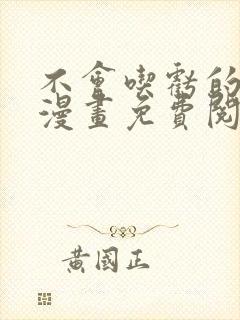 不會喫虧的
漫畫免費閱
黃國正